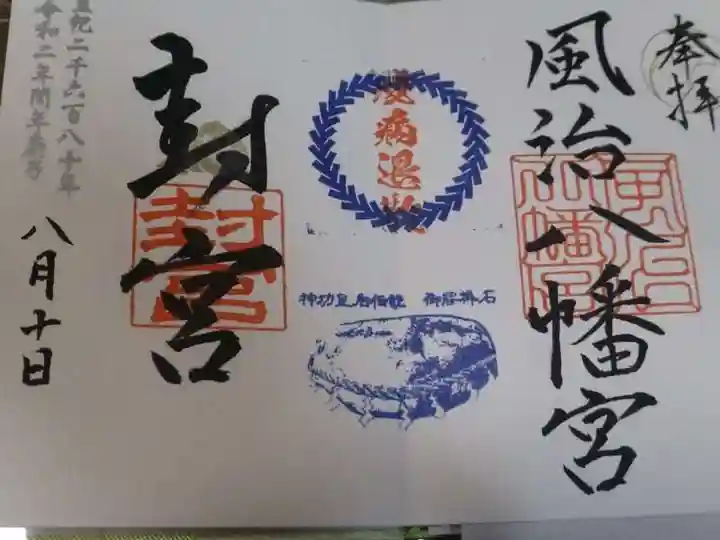 奉拝
風治八幡宮
疫病退散
神功皇后伝説 御腰掛石
封宮
封宮
八月十日
皇紀二千六百八十年
令和二年閏年庚子